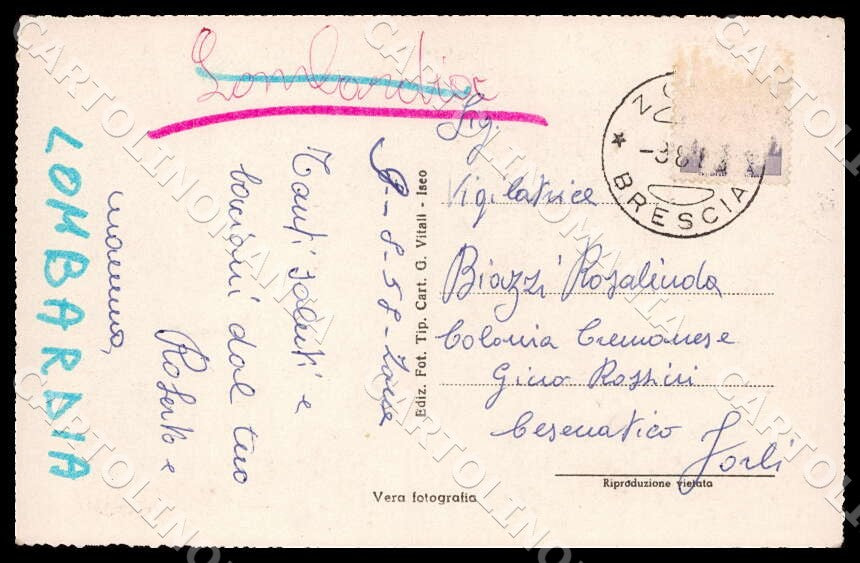 Lombardia
LOMBARDIA
9-8-58-
Tanti saluti e
bacioni dal tuo
Roberto e
mamma,
Ediz. Fot. Tip. Cart. G. Vitali - Iseo
Sig.
Vigilatrice
Biazzi Rosalinda
Colonia Cremonese
Gino Rossini
Cesenatico Forlì
Vera fotografia
Riproduzione vietata
BRESCIA
CARTOLINOMANIA